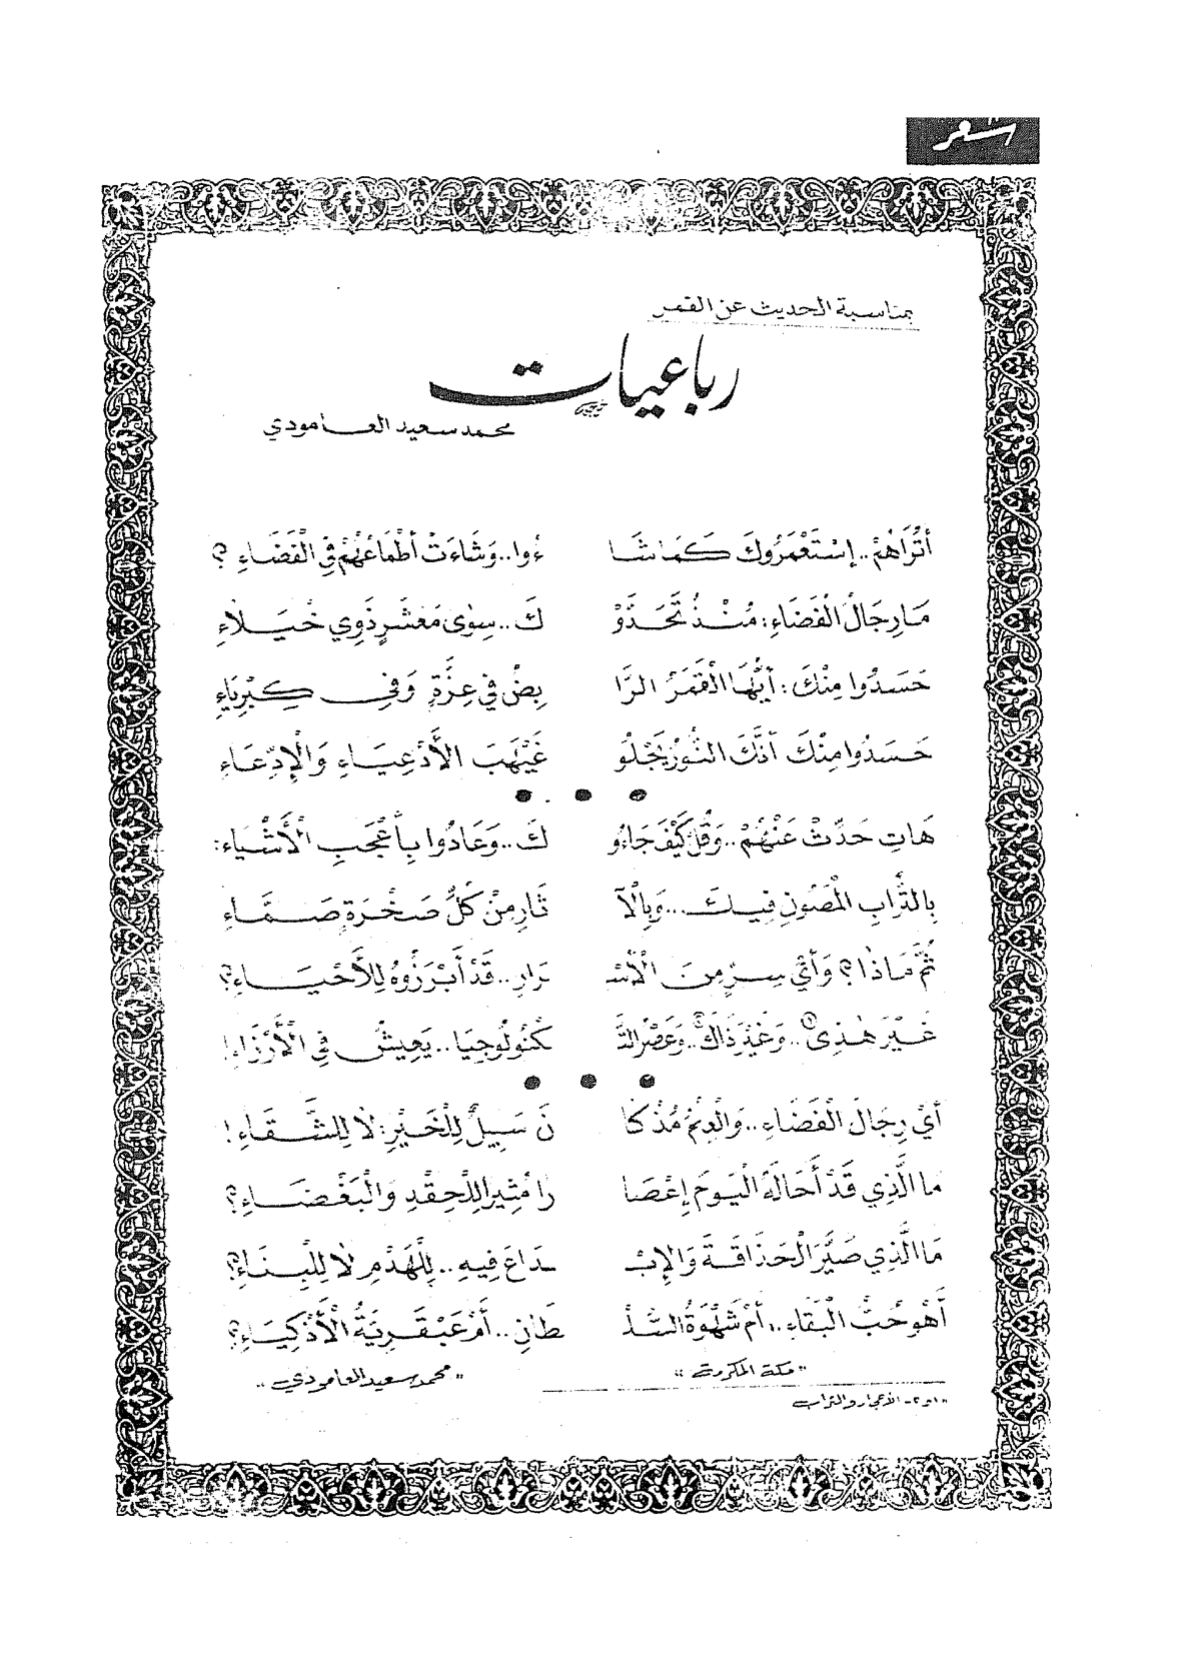 الشعر
بمناسبة الحديث عن القمر
رباعيات
محمد سعيد العامودي
أَتُرَاهُمْ.. إِسْتَعْمَرُوكَ كَمَا شَا ءُوا.. وَشَاءَتْ أَطْمَاعُهُمْ فِي الْفَضَاءِ ؟
مَا رِجَالُ الْفَضَاءِ: مُنْذُ تَحَدَّوْ كَ.. سِوَى مَعْشَرٍ ذَوِي خُيَلَاءِ
حَسَدُوا مِنْكَ: أَيُّهَا الْقَمَرُ الرَّا بِضُ فِي عِزَّةٍ وَفِي كِبْرِيَاءِ
حَسَدُوا مِنْكَ أَنَّكَ النُّورُ يَجْلُو غَيْهَبَ الأَدْعِيَاءِ وَالْإِدِّعَاءِ
هَاتِ حَدِّثْ عَنْهُمْ.. وَقُلْ كَيْفَ جَاءُو كَ.. وَعَادُوا بِأَعْجَبِ الْأَشْيَاءِ:
بِالتُّرَابِ الْمَصُونِ فِيكَ... وَبِالْآ ثَارِ مِنْ كُلِّ صَخْرَةٍ صَمَّاءِ
ثُمَّ مَاذَا؟ وَأَيُّ سِرٍّ مِنَ الْأَسْـ ـرَارِ.. قَدْ أَبْرَزُوهُ لِلأَحْيَاءِ؟
غَيْرَ هٰذِي (١).. وَغَيْرَ ذَاكَ (٢).. وَعَصْرُ التِّـ ـكْنُولُوجِيَا.. يَعِيشُ فِي الْأَرْزَاءِ!
أَيْ رِجَالَ الْفَضَاءِ.. وَالْعِلْمُ مُذْ كَا نَ سَبِيلٌ لِلْخَيْرِ: لَا لِلشَّقَاءِ!
مَا الَّذِي قَدْ أَحَالَهُ الْيَوْمَ إِعْصَا رًا مُثِيرًا لِلْحِقْدِ وَالْبَغْضَاءِ؟
مَا الَّذِي صَيَّرَ الْحَذَاقَةَ وَالْإِبْـ ـدَاعَ فِيهِ.. لِلْهَدْمِ لَا لِلْبِنَاءِ؟
أَهُوَ حُبُّ الْبَقَاءِ.. أَمْ شَهْوَةُ السُّلْـ ـطَانِ.. أَمْ عَبْقَرِيَةُ الْأَذْكِيَاءِ؟
"مكة المكرمة" "محمد سعيد العامودي"
"١و٢- الأحجار والتراب